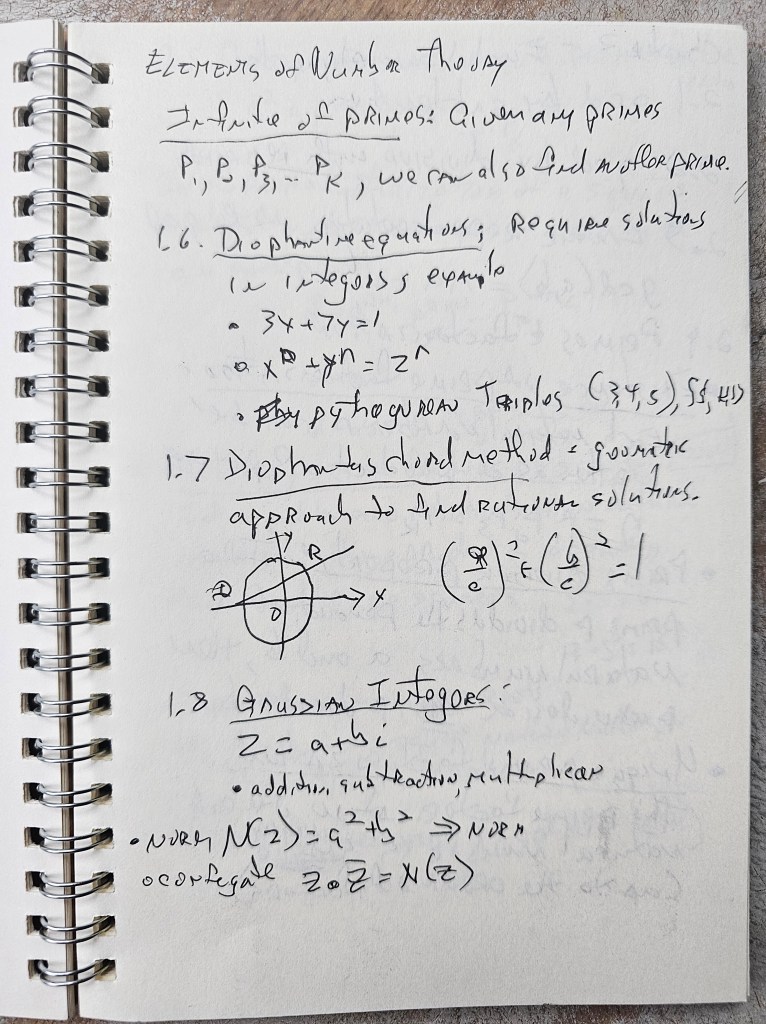 ELEMENTS of Number Theory
Infinite of PRIMES: Given any PRIMES
P1, P2, P3, -- PK, we can also find another prime.
1.6. Diophantine equations; Require solutions
in integers; example
• 3x+7y=1
• x^n + y^n = z^n
• pythagorean Triples (3,4,5),
1.7 Diophantus chord method = geometric
approach to find Rational solutions.
y
R
Q
O
x
(a/c)^2 + (b/c)^2 = 1
1.8 Gaussian Integers:
Z = a+bi
• addition, subtraction, multiplican
• NORM N(z) = a^2+b^2 ⇒ NORM
• confegate z • z̄ = N(z)